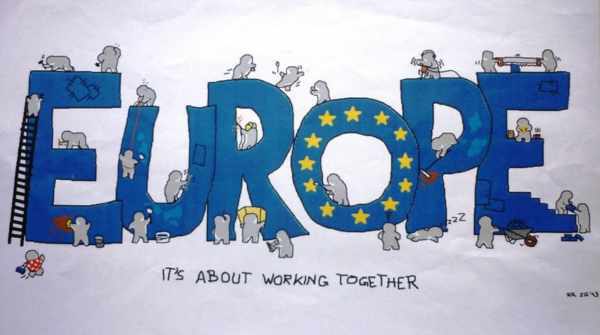 EUROPE
zZZ
IT'S ABOUT WORKING TOGETHER